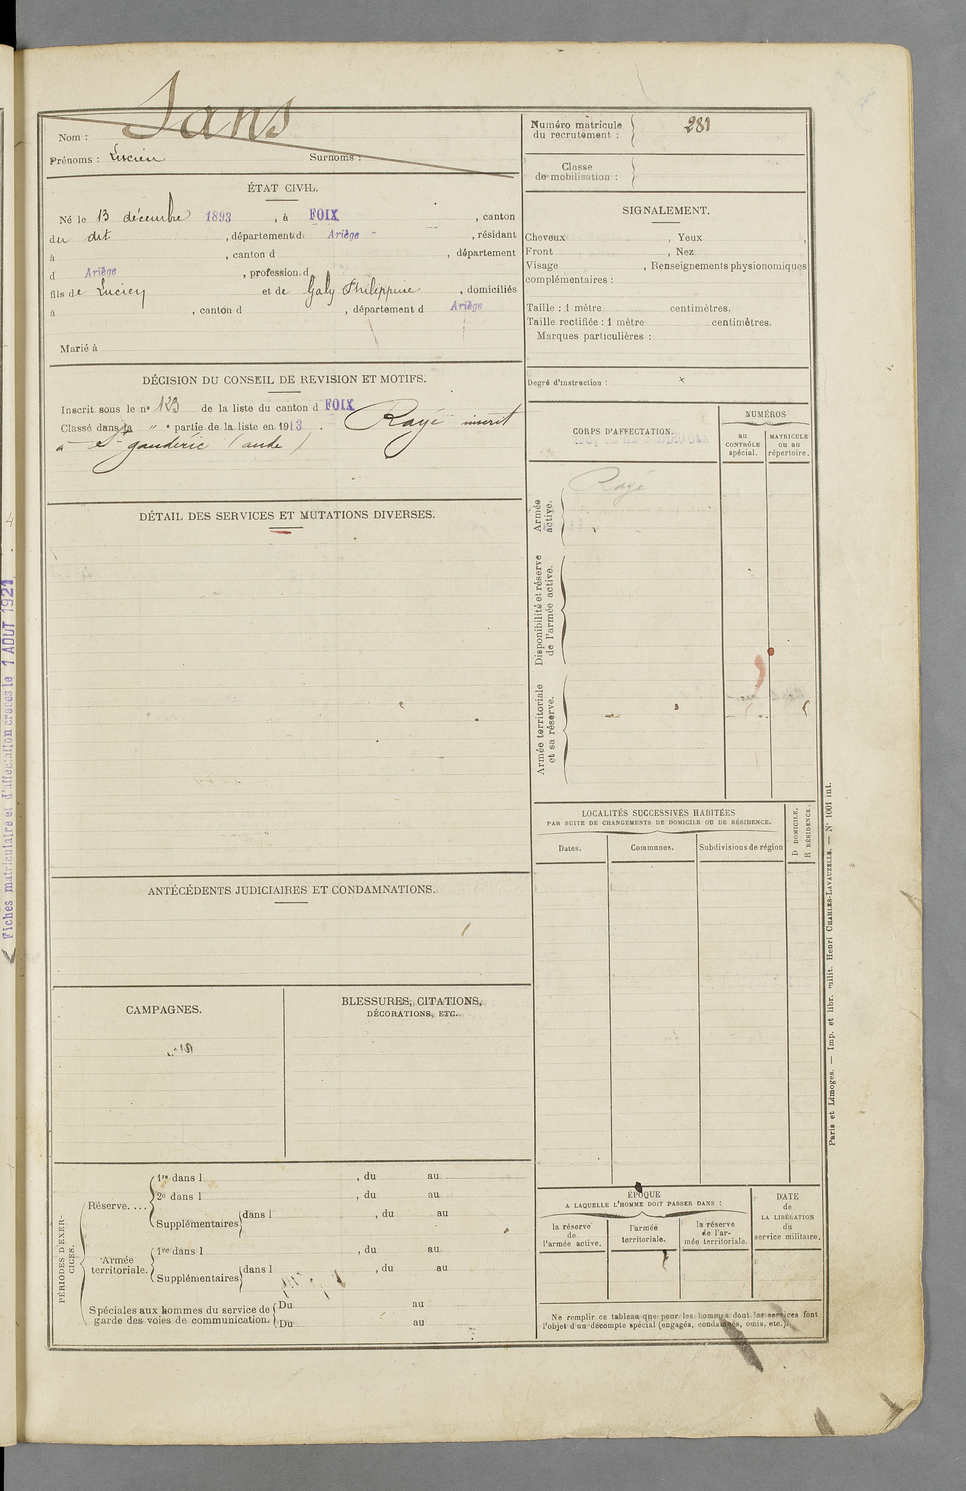 Sans
Nom :
Prénoms : Lucien Surnoms :
ÉTAT CIVIL.
Né le 13 décembre 1893, à FOIX, canton
du dit, département d Ariège, résidant
à , canton d , département
d Ariège, profession d
fils de Lucien et de Galy Philippine, domiciliés
à , canton d , département d Ariège
Marié à
DÉCISION DU CONSEIL DE REVISION ET MOTIFS.
Inscrit sous le n° 123 de la liste du canton d FOIX
Classé dans la " e partie de la liste en 1913. Rayé inscrit
à St gauderic (aude)
DÉTAIL DES SERVICES ET MUTATIONS DIVERSES.
ANTÉCÉDENTS JUDICIAIRES ET CONDAMNATIONS.
CAMPAGNES.
BLESSURES, CITATIONS,
DÉCORATIONS, ETC.
PÉRIODES D'EXER-
CICES.
Réserve....
1re dans l , du au
2e dans l , du au
Supplémentaires dans l , du au
Armée
territoriale.
1re dans l , du au
Supplémentaires dans l , du au
Spéciales aux hommes du service de
garde des voies de communication.
Du au
Du au
Numéro matricule
du recrutement :
281
Classe
de mobilisation :
SIGNALEMENT.
Cheveux , Yeux ,
Front , Nez
Visage , Renseignements physionomiques
complémentaires :
Taille : 1 mètre centimètres.
Taille rectifiée : 1 mètre centimètres.
Marques particulières :
Degré d'instruction : x
CORPS D'AFFECTATION.
NUMÉROS
au
CONTRÔLE
spécial.
MATRICULE
ou au
répertoire.
Rayé
Armée
active.
Disponibilité et réserve
de l'armée active.
Armée territoriale
et sa réserve.
LOCALITÉS SUCCESSIVES HABITÉES
PAR SUITE DE CHANGEMENTS DE DOMICILE OU DE RÉSIDENCE.
D DOMICILE.
R RÉSIDENCE.
Dates. Communes. Subdivisions de région
ÉPOQUE
A LAQUELLE L'HOMME DOIT PASSER DANS :
la réserve
de
l'armée active.
l'armée
territoriale.
la réserve
de l'ar-
mée territoriale.
DATE
de
LA LIBÉRATION
du
service militaire.
Ne remplir ce tableau que pour les hommes dont les services font
l'objet d'un décompte spécial (engagés, condamnés, omis, etc.).
Paris et Limoges. — Imp. et libr. milit. Henri CHARLES-LAVAUZELLE. — N° 1001 int.
Fiches matriculaire et d'affectation créées le 1 AOUT 1921